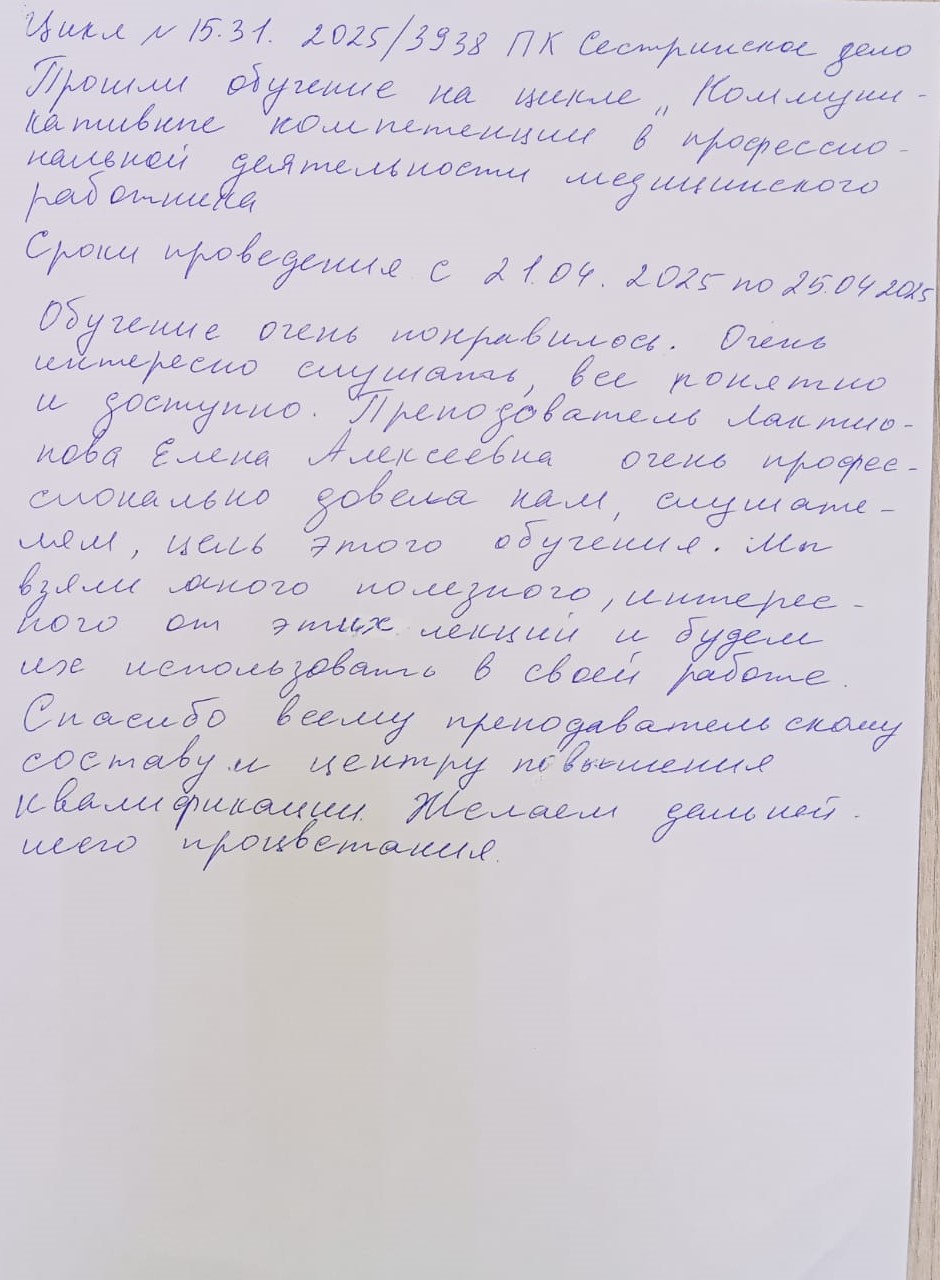 Цикл № 15.31. 2025/3938 ПК Сестринское дело
Прошли обучение на цикле „Коммуни-
кативные компетенции в профессио-
нальной деятельности медицинского
работника
Сроки проведения с 21.04. 2025 по 25.04 2025
Обучение очень понравилось. Очень
интересно слушать, все понятно
и доступно. Преподователь Лактио-
нова Елена Алексеевна очень профес-
сионально довела нам, слушате-
лям, цель этого обучения. Мы
взяли много полезного, интерес-
ного от этих лекций и будем
их использовать в своей работе.
Спасибо всему преподавательскому
составу и центру повышения
квалификации. Желаем дальней-
шего процветания.